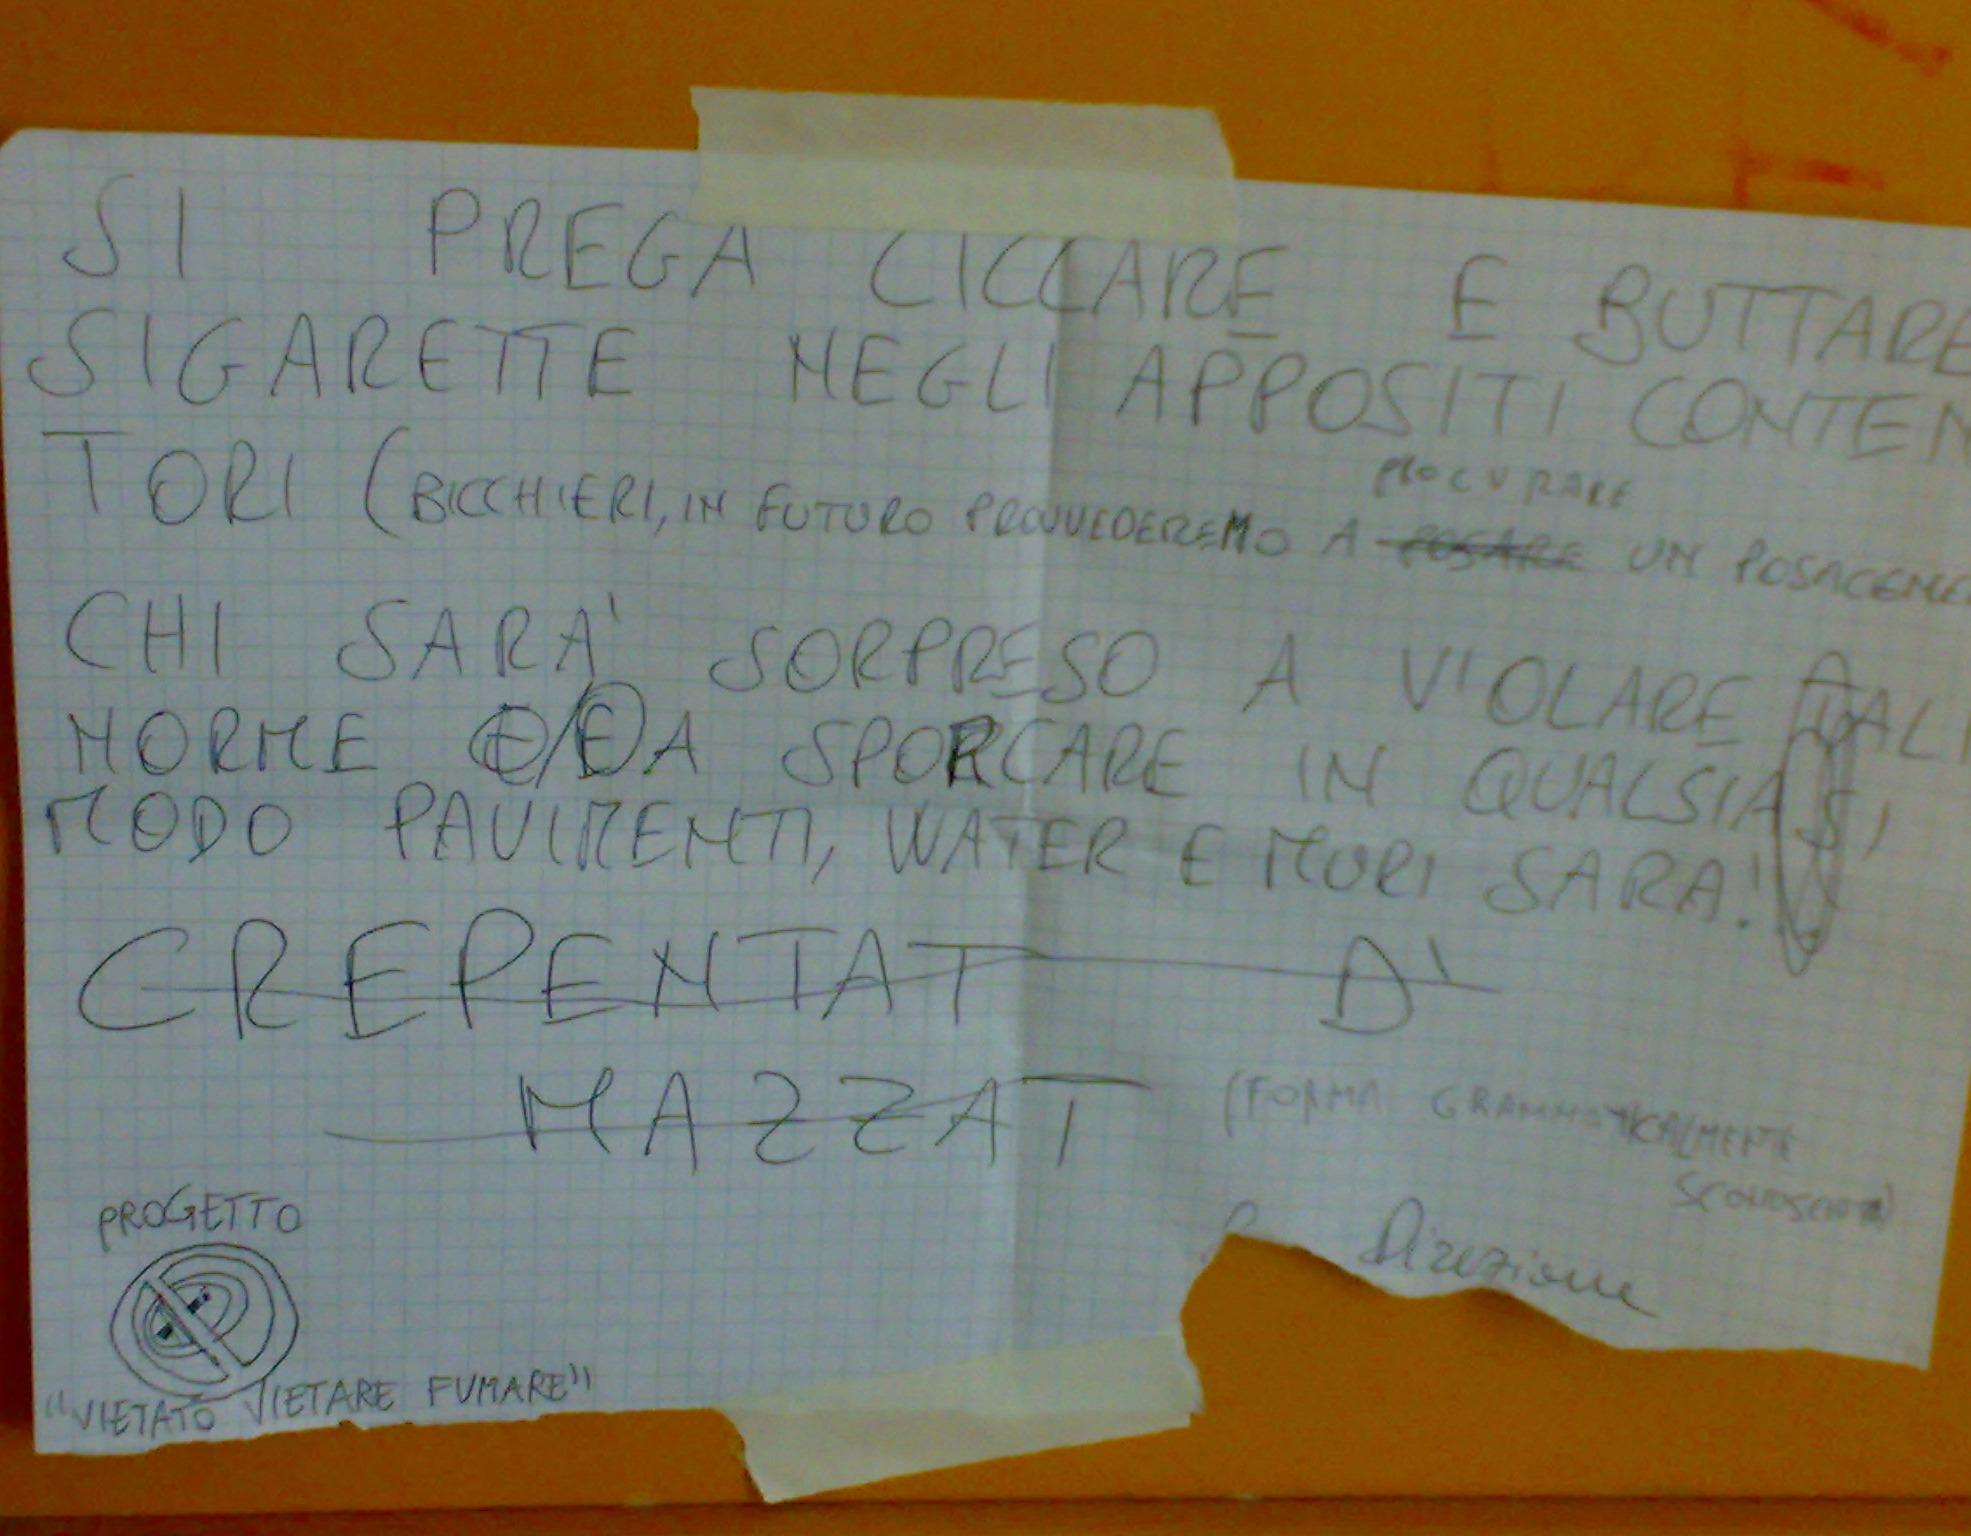 SI PREGA CICCARE E BUTTARE
SIGARETTE NEGLI APPOSITI CONTEN
TORI (BICCHIERI, IN FUTURO PROVVEDEREMO A POSARE PROCURARE UN POSACENE
CHI SARA' SORPRESO A VIOLARE A TALI
NORME E/E A SPORCARE IN QUALSIASI
MODO PAVIMENTI, WATER E MURI SARA'
CREPENTAT D'
MAZZAT (FORMA GRAMMATICALMENTE
SCONOSCIUTA)
Direzione
PROGETTO
"VIETATO VIETARE FUMARE"